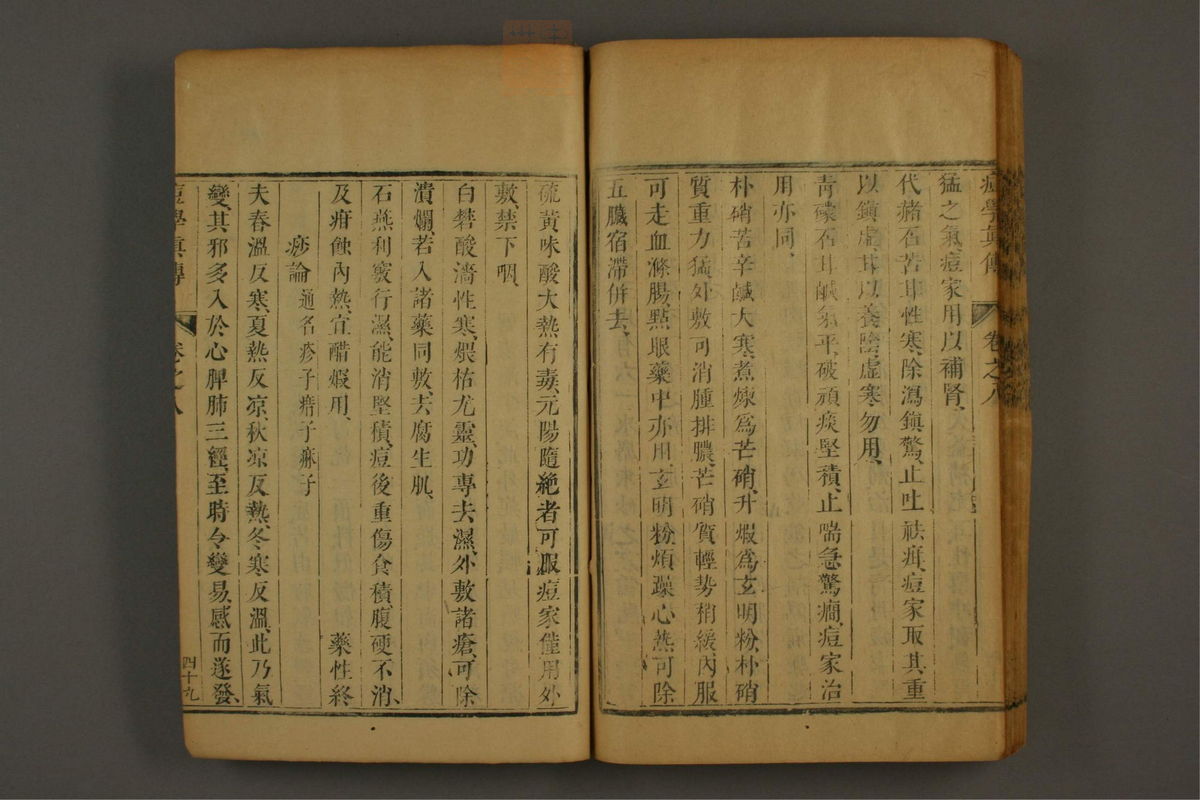 痘學眞傳 卷之八
猛之氣、痘家用以補腎、
代赭石苦甘性寒、除瀉鎭驚止吐祛疳、痘家取其重
以鎭虛、甘以養陰、虛寒勿用、
靑礞石甘鹹氣平、破頑痰堅積、止喘急驚癎、痘家治
用亦同、
朴硝苦辛鹹大寒、煮煉爲芒硝、升煅爲玄明粉、朴硝
質重力猛、外敷可消腫排膿、芒硝質輕勢稍緩、內服
可走血滌腸、點眼藥中亦用、玄明粉煩躁心熱可除
五臟宿滯併去、
硫黃味酸大熱有毒、元陽隨絶者可服、痘家僅用外
敷、禁下咽、
白礬酸濇性寒、煨枯尤靈、功專去濕、外敷諸瘡、可除
潰爛、若入諸藥同敷、去腐生肌、
石燕利竅行濕、能消堅積、痘後重傷食積腹硬不消、
及疳蝕內熱、宜醋煅用、 藥性終
痧論 通名疹子瘄子痲子
夫春溫反寒、夏熱反凉、秋凉反熱、冬寒反溫、此乃氣
變、其邪多入於心脾肺三經、至時令變易、感而遂發、
痘學眞傳 卷之八 四十九